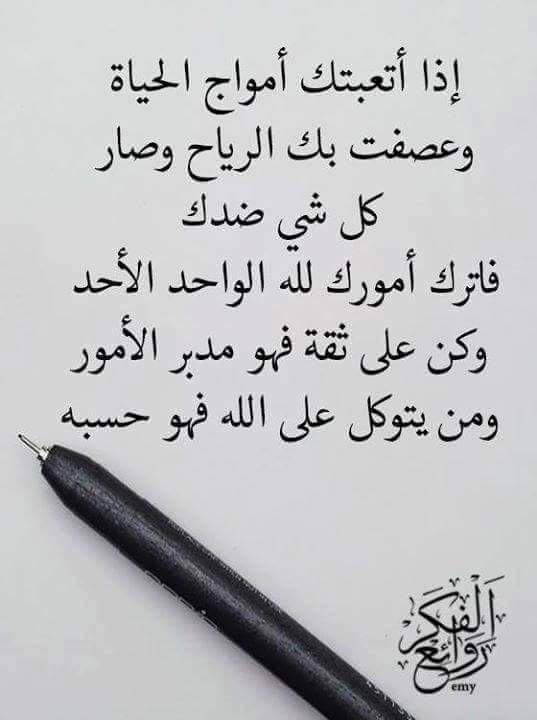 إذا أتعبتك أمواج الحياة
وعصفت بك الرياح وصار
كل شي ضدك
فاترك أمورك لله الواحد الأحد
وكن على ثقة فهو مدبر الأمور
ومن يتوكل على الله فهو حسبه
روائع الفكر
emy